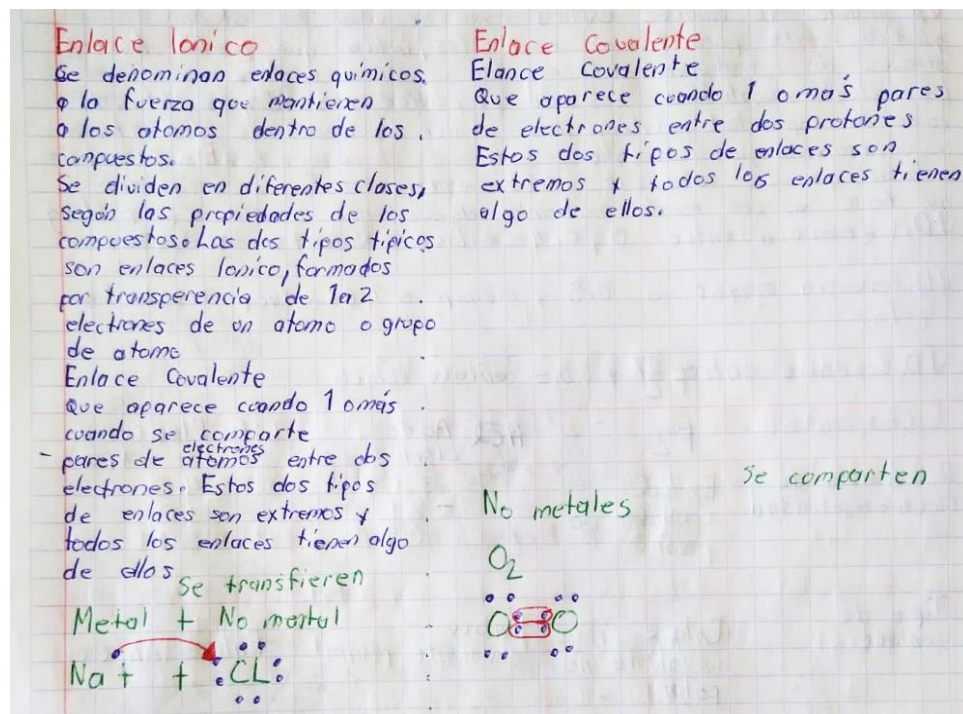 Enlace Ionico
Se denominan enlaces químicos.
a la fuerza que mantienen
a los atomos dentro de los
compuestos.
Se dividen en diferentes clases,
según las propiedades de los
compuestos. Las dos tipos típicos
son enlaces Ionico, formados
por transperencia de 1 en 2
electrones de un atomo o grupo
de atomo
Enlace Covalente
Que aparece cuando 1 o más
cuando se comparte
electrones
- pares de atomos entre dos
electrones. Estos dos tipos
de enlaces son extremos y
todos los enlaces tienen algo
de ellos
Se transfieren
Metal + No mertal
Na + + CL
Enlace Covalente
Elance Covalente
Que aparece cuando 1 o más pares
de electrones entre dos protones
Estos dos tipos de enlaces son
extremos y todos los enlaces tienen
algo de ellos.
Se comparten
No metales
O2
O O